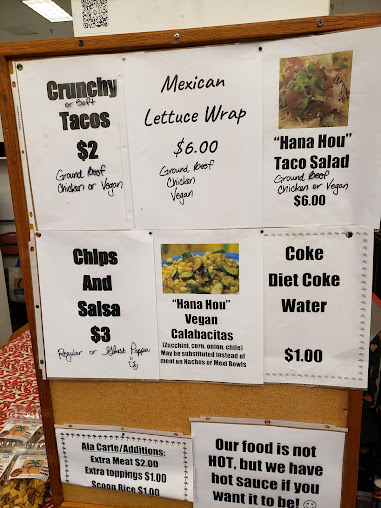 Crunchy
or Soft
Tacos
$2
Ground Beef
Chicken or Vegan
Mexican
Lettuce Wrap
$6.00
Ground Beef
Chicken
Vegan
"Hana Hou"
Taco Salad
Ground Beef
Chicken or Vegan
$6.00
Chips
And
Salsa
$3
Regular or Ghost Pepper
"Hana Hou"
Vegan
Calabacitas
(Zucchini, corn, onion, chile)
May be substituted instead of
meat on Nachos or Mexi Bowls
Coke
Diet Coke
Water
$1.00
Ala Carte/Additions:
Extra Meat $2.00
Extra toppings $1.00
Scoop Rice $1.00
Our food is not
HOT, but we have
hot sauce if you
want it to be! ☺